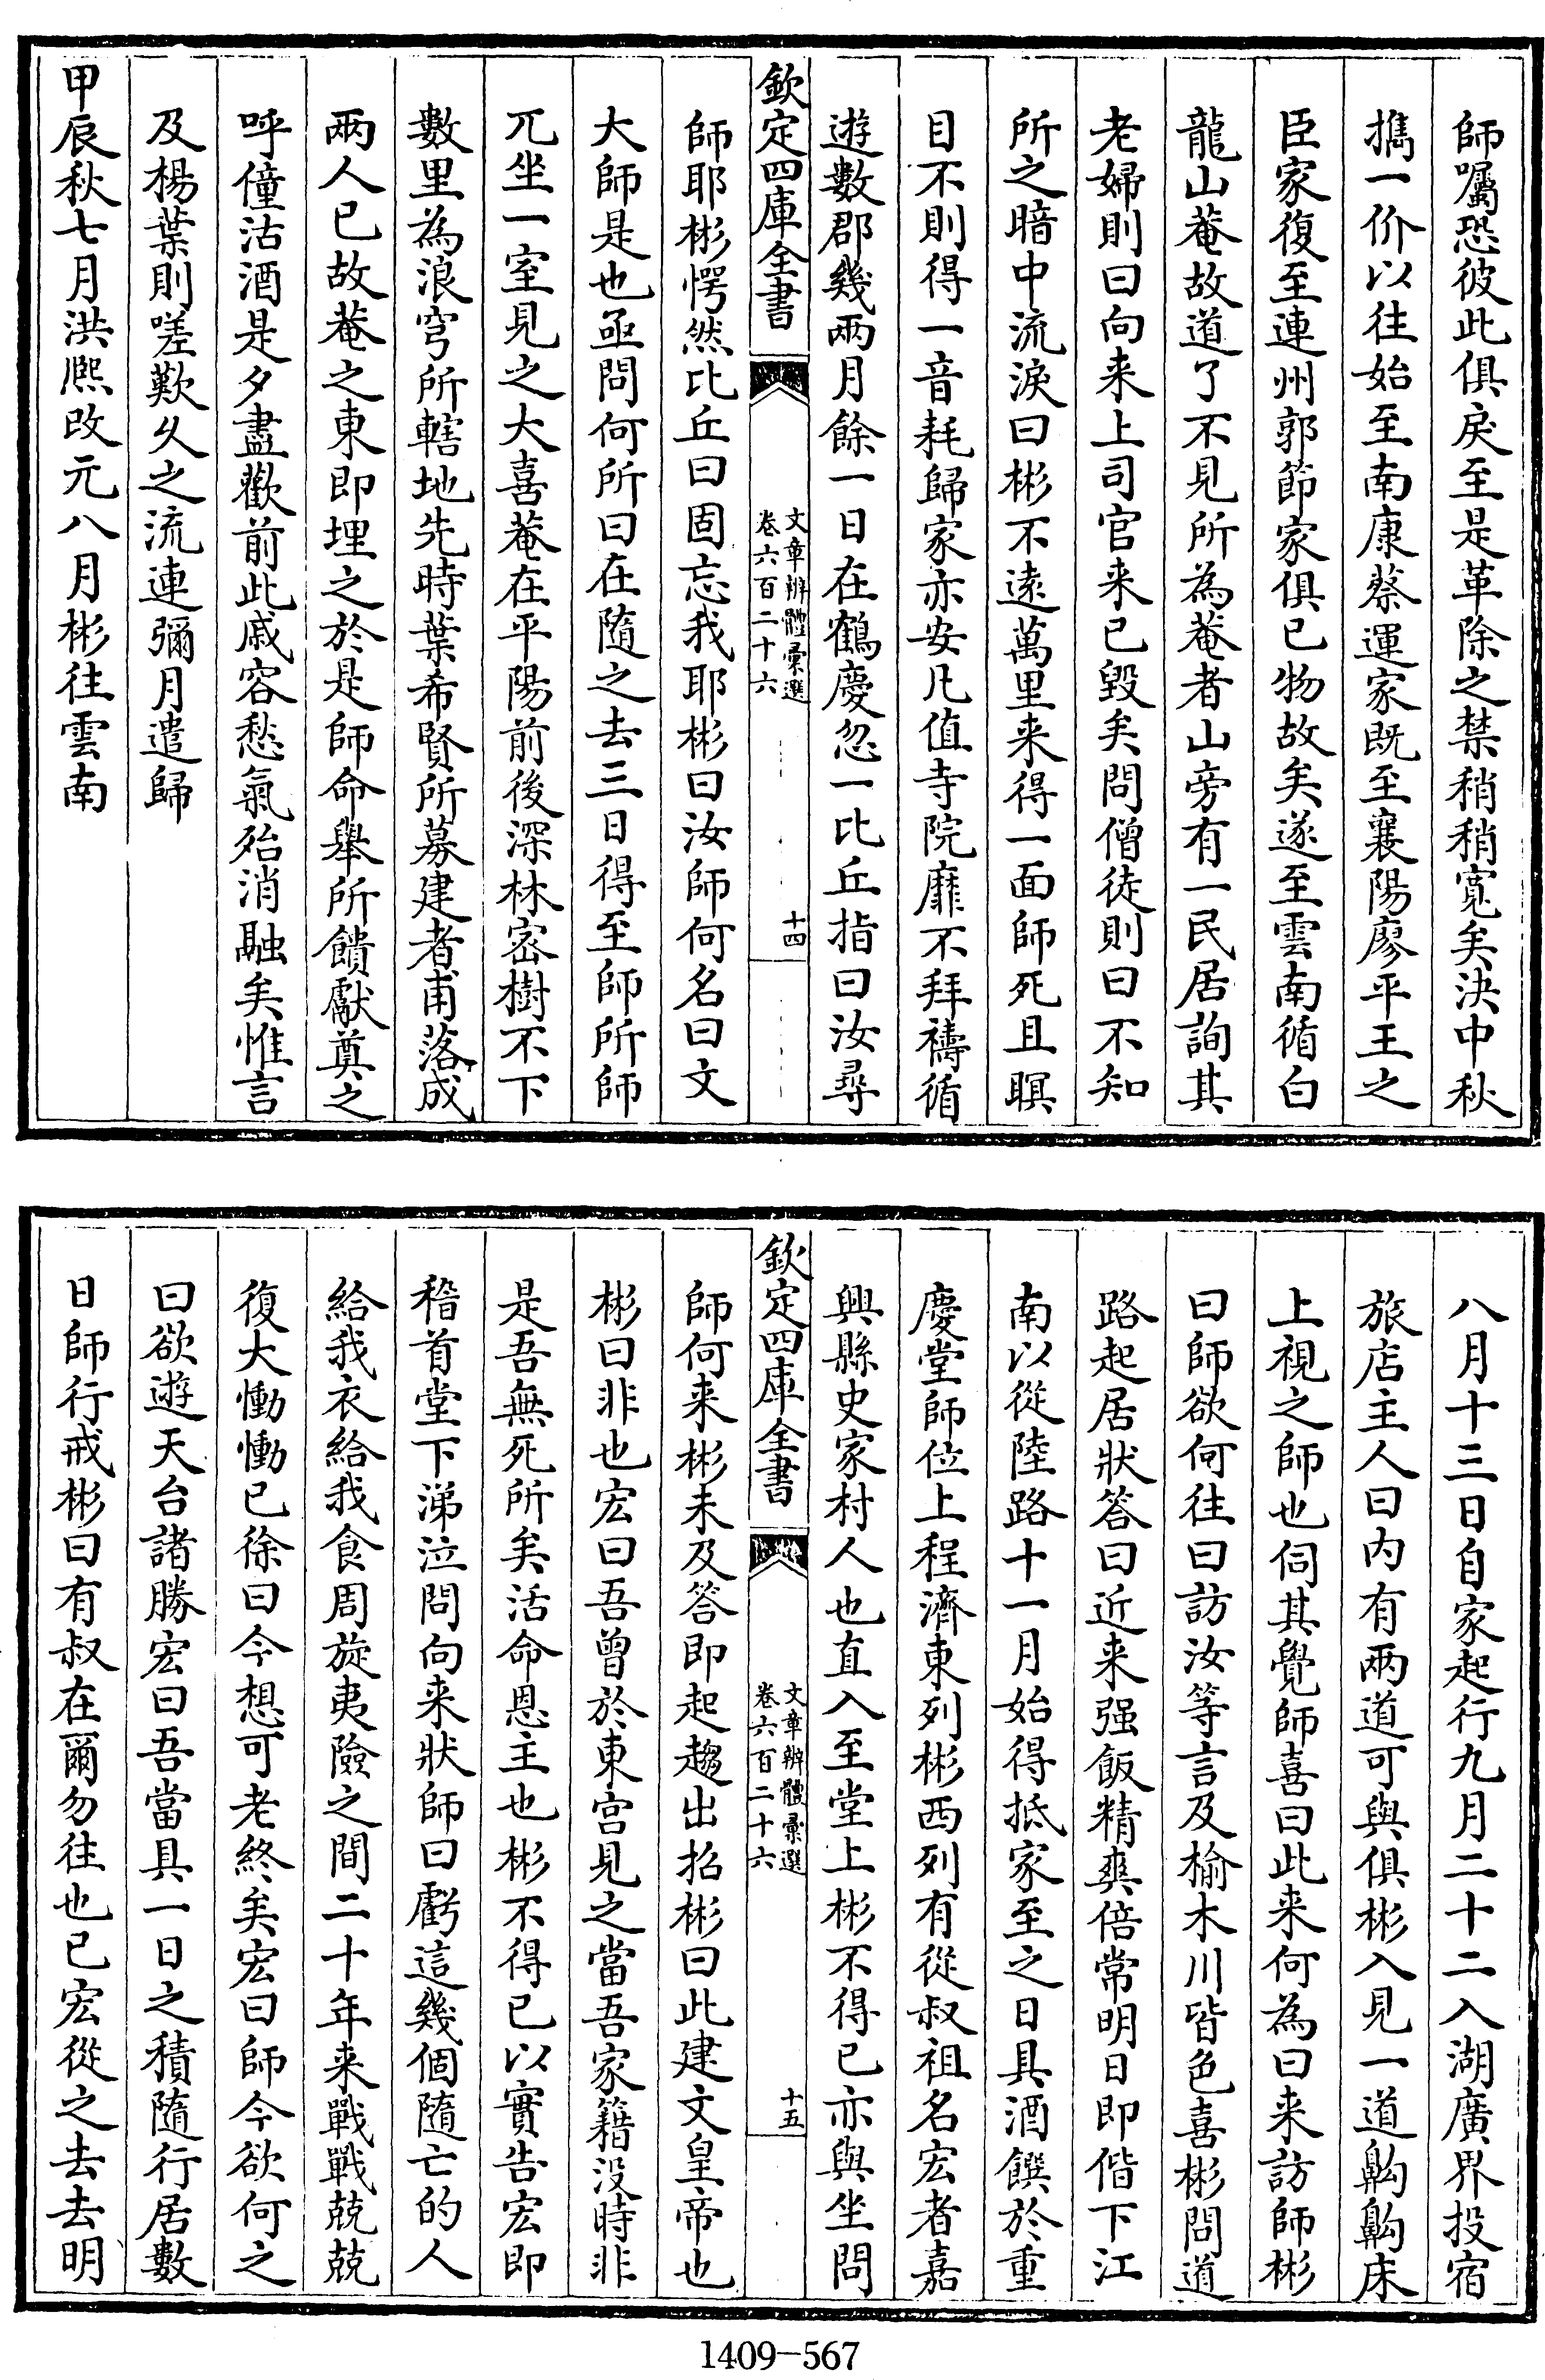 師囑恐彼此俱戾至是革除之禁稍稍寬矣決中秋
携一价以往始至南康蔡運家既至襄陽廖平王之
臣家復至連州郭節家俱已物故矣遂至雲南循白
龍山菴故道了不見所為菴者山旁有一民居詢其
老婦則曰向来上司官来已毀矣問僧徒則曰不知
所之暗中流淚曰彬不逺萬里来得一面師死且瞑
目不則得一音耗歸家亦安凡值寺院靡不拜禱循
遊數郡幾兩月餘一日在鶴慶忽一比丘指曰汝尋
欽定四庫全書
文章辨體彙選
卷六百二十六
十四
師耶彬愕然比丘曰固忘我耶彬曰汝師何名曰文
大師是也亟問何所曰在隨之去三日得至師所師
兀坐一室見之大喜菴在平陽前後深林密樹不下
數里為浪穹所轄地先時葉希賢所募建者甫落成
兩人已故菴之東即埋之於是師命舉所饋獻奠之
呼僮沽酒是夕盡歡前此戚容愁氣殆消融矣惟言
及楊葉則嗟歎久之流連彌月遣歸
甲辰秋七月洪熈改元八月彬往雲南
八月十三日自家起行九月二十二入湖廣界投宿
旅店主人曰内有兩道可與俱彬入見一道齁齁床
上視之師也伺其覺師喜曰此来何為曰来訪師彬
曰師欲何往曰訪汝等言及榆木川皆色喜彬問道
路起居狀答曰近来强飯精爽倍常明日即偕下江
南以從陸路十一月始得抵家至之日具酒饌於重
慶堂師位上程濟東列彬西列有從叔祖名宏者嘉
興縣史家村人也直入至堂上彬不得已亦與坐問
欽定四庫全書
文章辨體彙選
卷六百二十六
十五
師何来彬未及答即起趨出招彬曰此建文皇帝也
彬曰非也宏曰吾曾於東宫見之當吾家籍没時非
是吾無死所矣活命恩主也彬不得已以實告宏即
稽首堂下涕泣問向来狀師曰虧這幾個隨亡的人
給我衣給我食周旋夷險之間二十年来戰戰兢兢
復大慟慟已徐曰今想可老終矣宏曰師今欲何之
曰欲遊天台諸勝宏曰吾當具一日之積隨行居數
日師行戒彬曰有叔在爾勿往也已宏從之去去明
1409-567